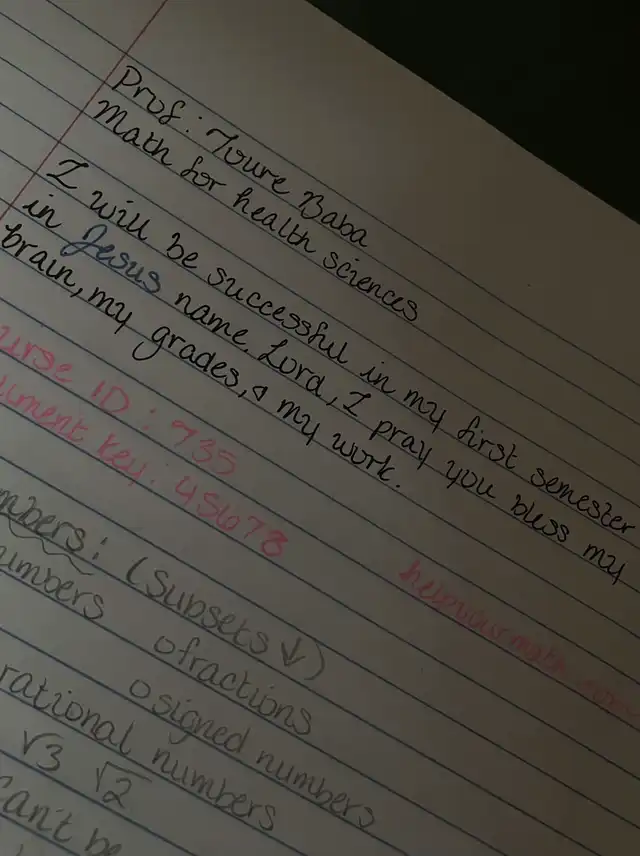 Prof: Toure Baba
Math for health sciences
I will be successful in my first semester
in Jesus name. Lord, I pray you bless my
brain, my grades, & my work.
urse ID: 735
llment Key: 45678
helpyourmath
mbers: (Subsets ↓)
umbers o fractions
o signed numbers
rational numbers
√3 √2
Can't be